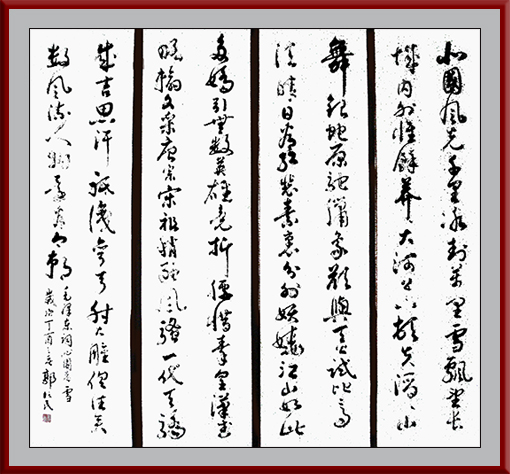 北國風光千里冰封萬里雪飄望長
城内外惟餘莽莽大河上下頓失滔滔山
舞銀蛇原馳蠟象欲與天公試比高
須晴日看紅裝素裹分外妖嬈江山如此
多嬌引無數英雄競折腰惜秦皇漢武
略輸文采唐宗宋祖稍遜風騷一代天驕
成吉思汗祇識彎弓射大雕俱往矣
數風流人物還看今朝
毛澤東詞沁園春雪
歲次丁酉 郭